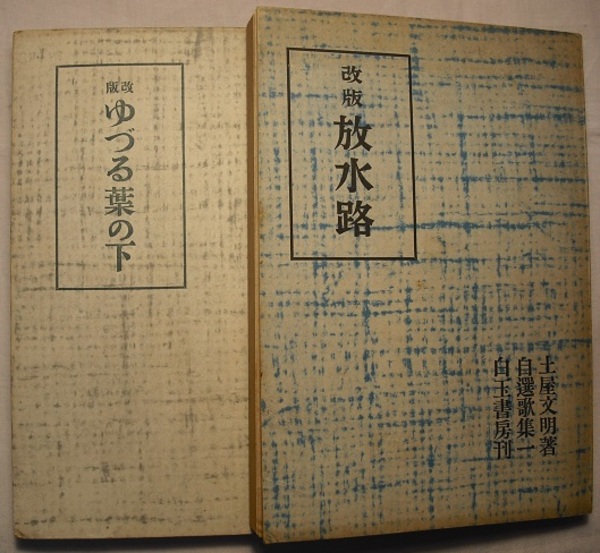 改版
放水路
土屋文明著
自選歌集一
白玉書房刊
改版
ゆづる葉の下